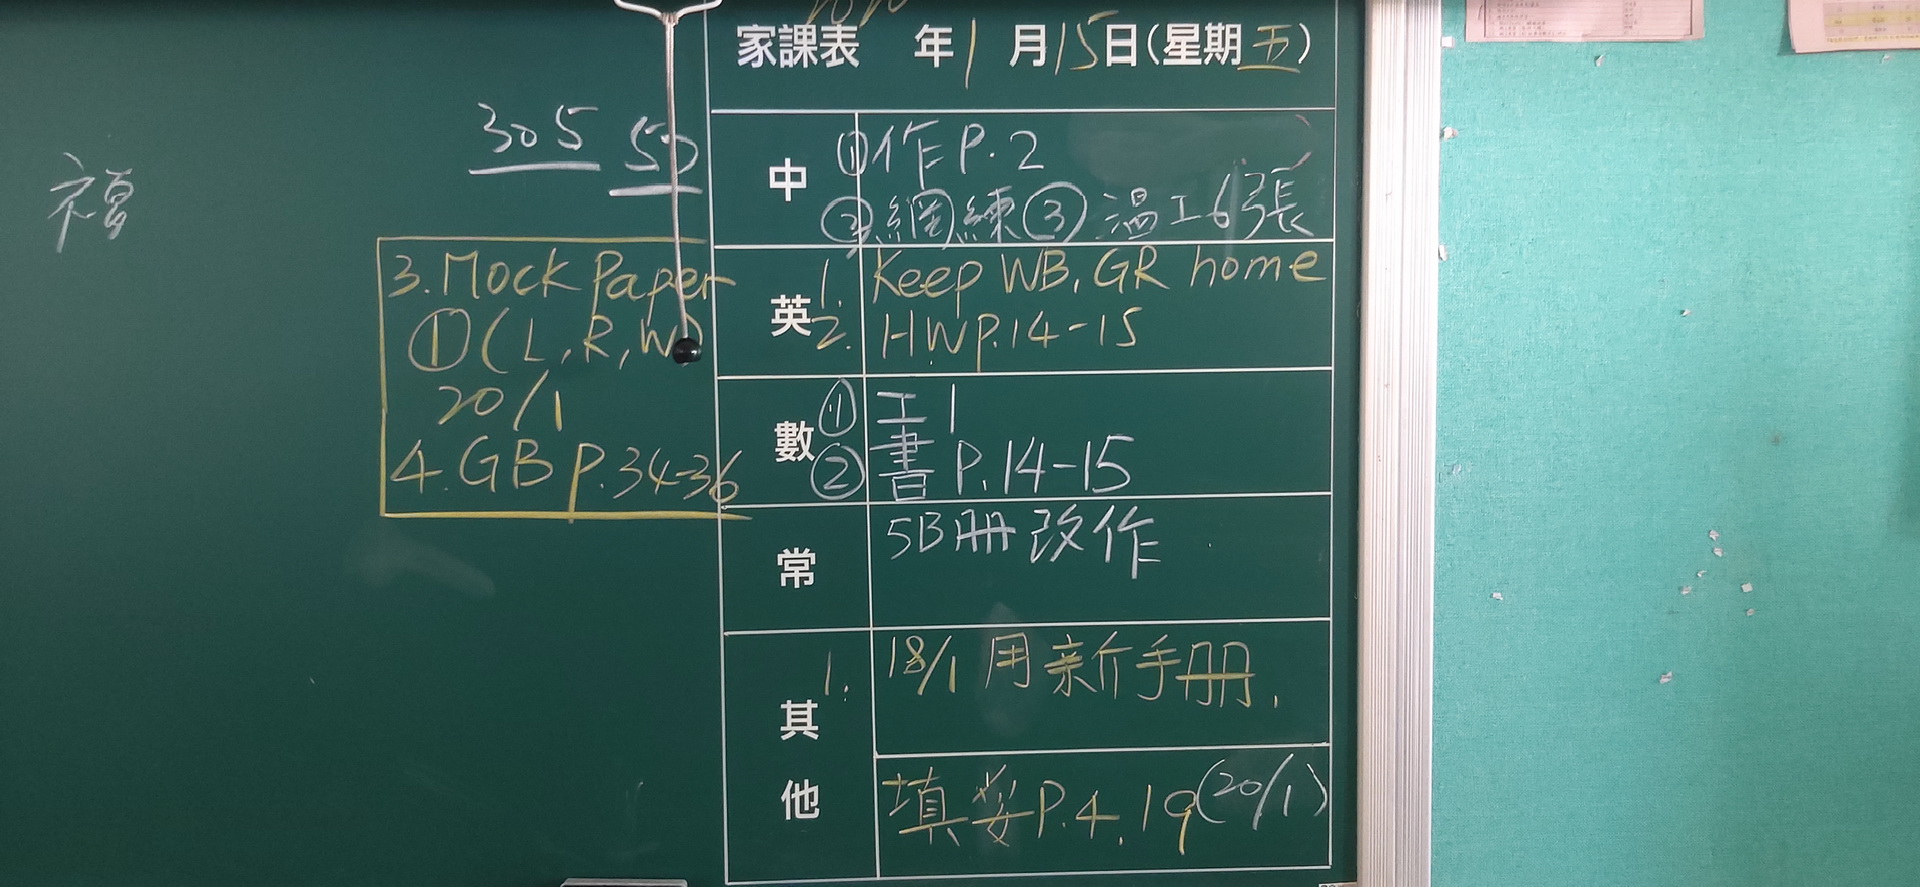 家課表 年1月15日(星期五)
305 50
福
中 ①作P.2
②網練③溫工6張
英 1. Keep WB, GR home
2. HW p.14-15
3. Mock Paper
①(L, R, W)
20/1
4. GB p.34-36
數 ①工1
②書P.14-15
常 5B冊改作
其他 1. 18/1 用新手冊.
填妥P.4, 19(20/1)